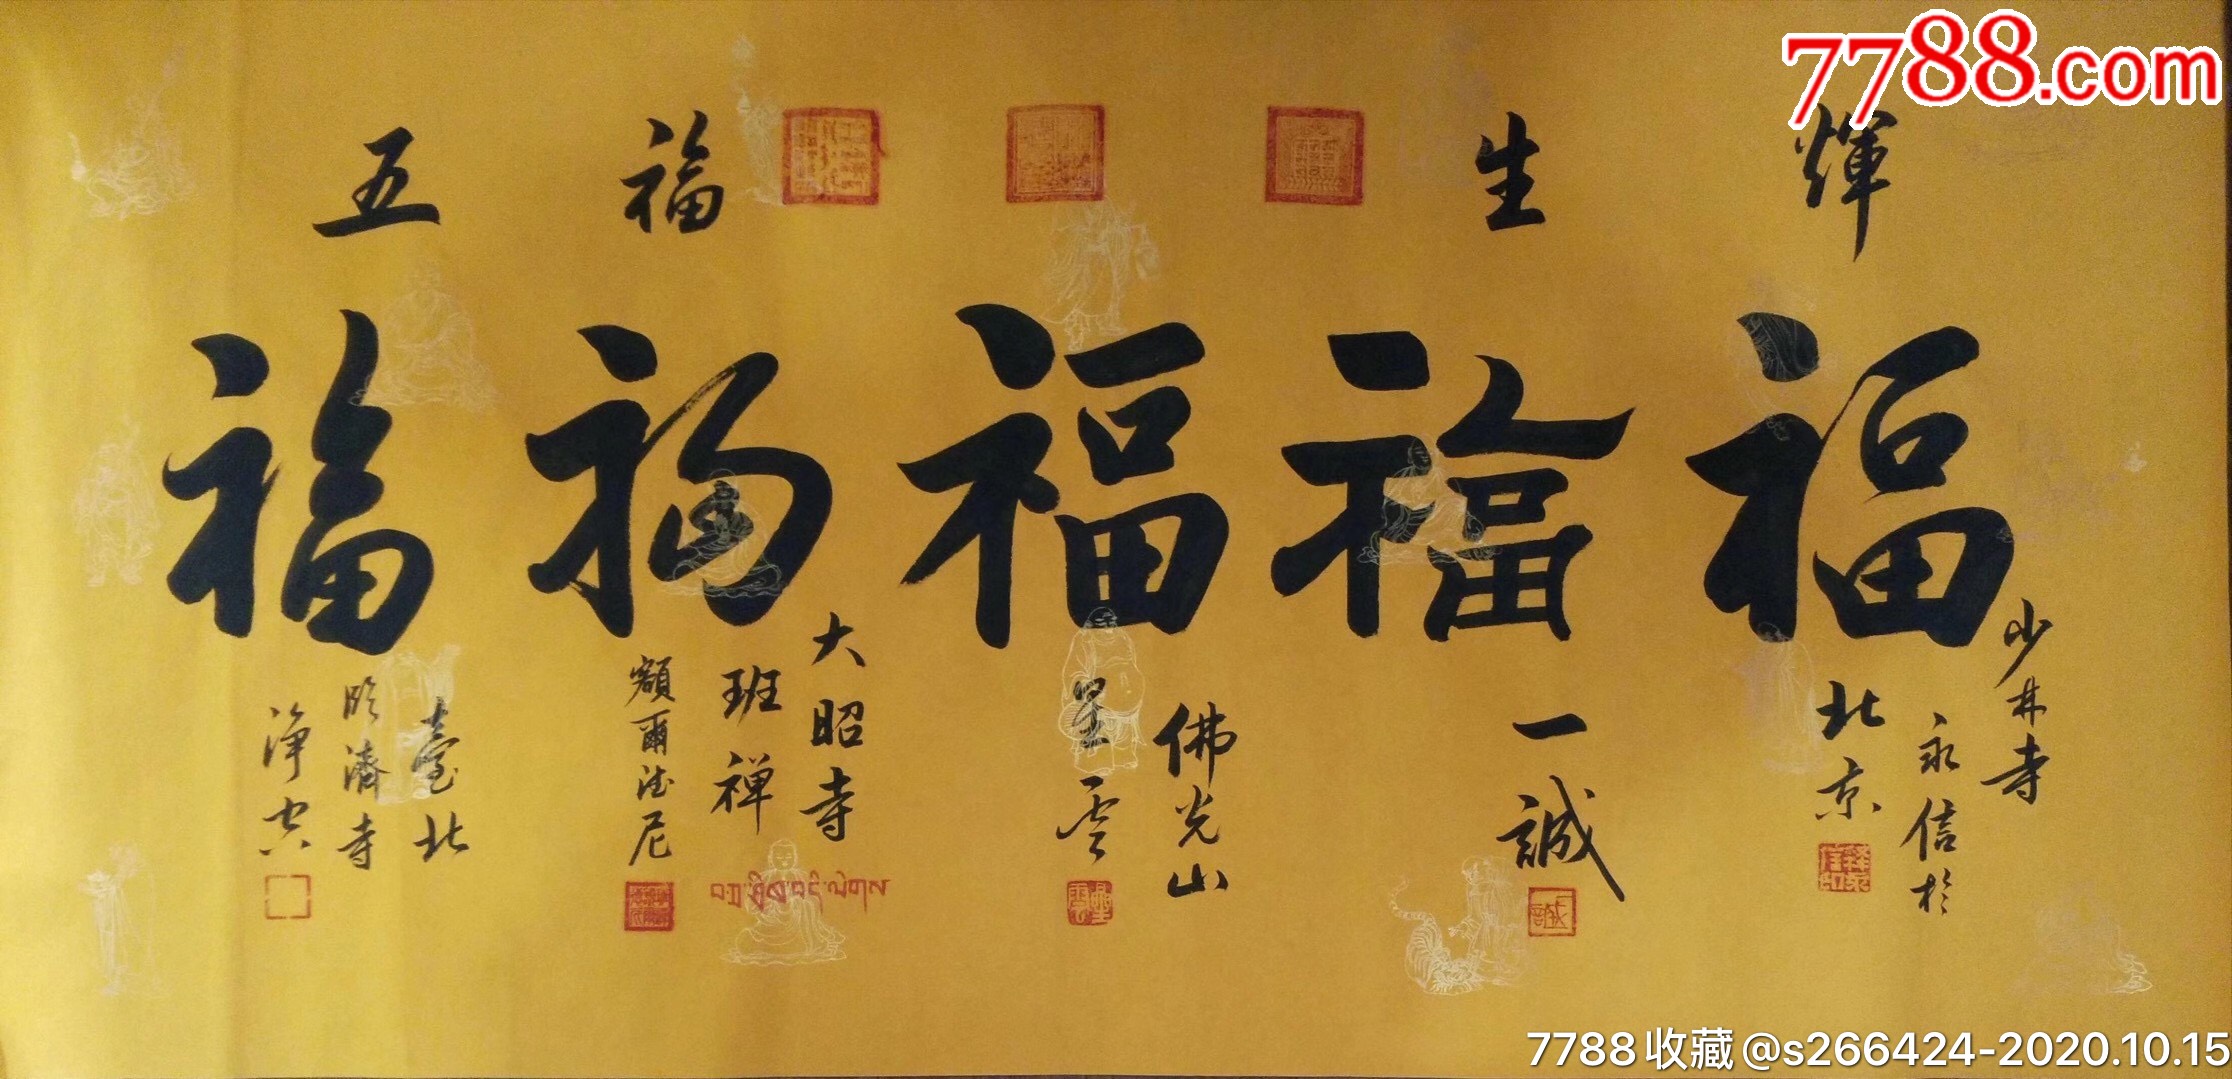 7788.com
五 福 生 輝
福 福 福 福 福
少林寺
永信於
北京
一誠
佛光山
星雲
大昭寺
班禅
額爾德尼
臺北
臨濟寺
淨空
7788收藏@s266424-2020.10.15